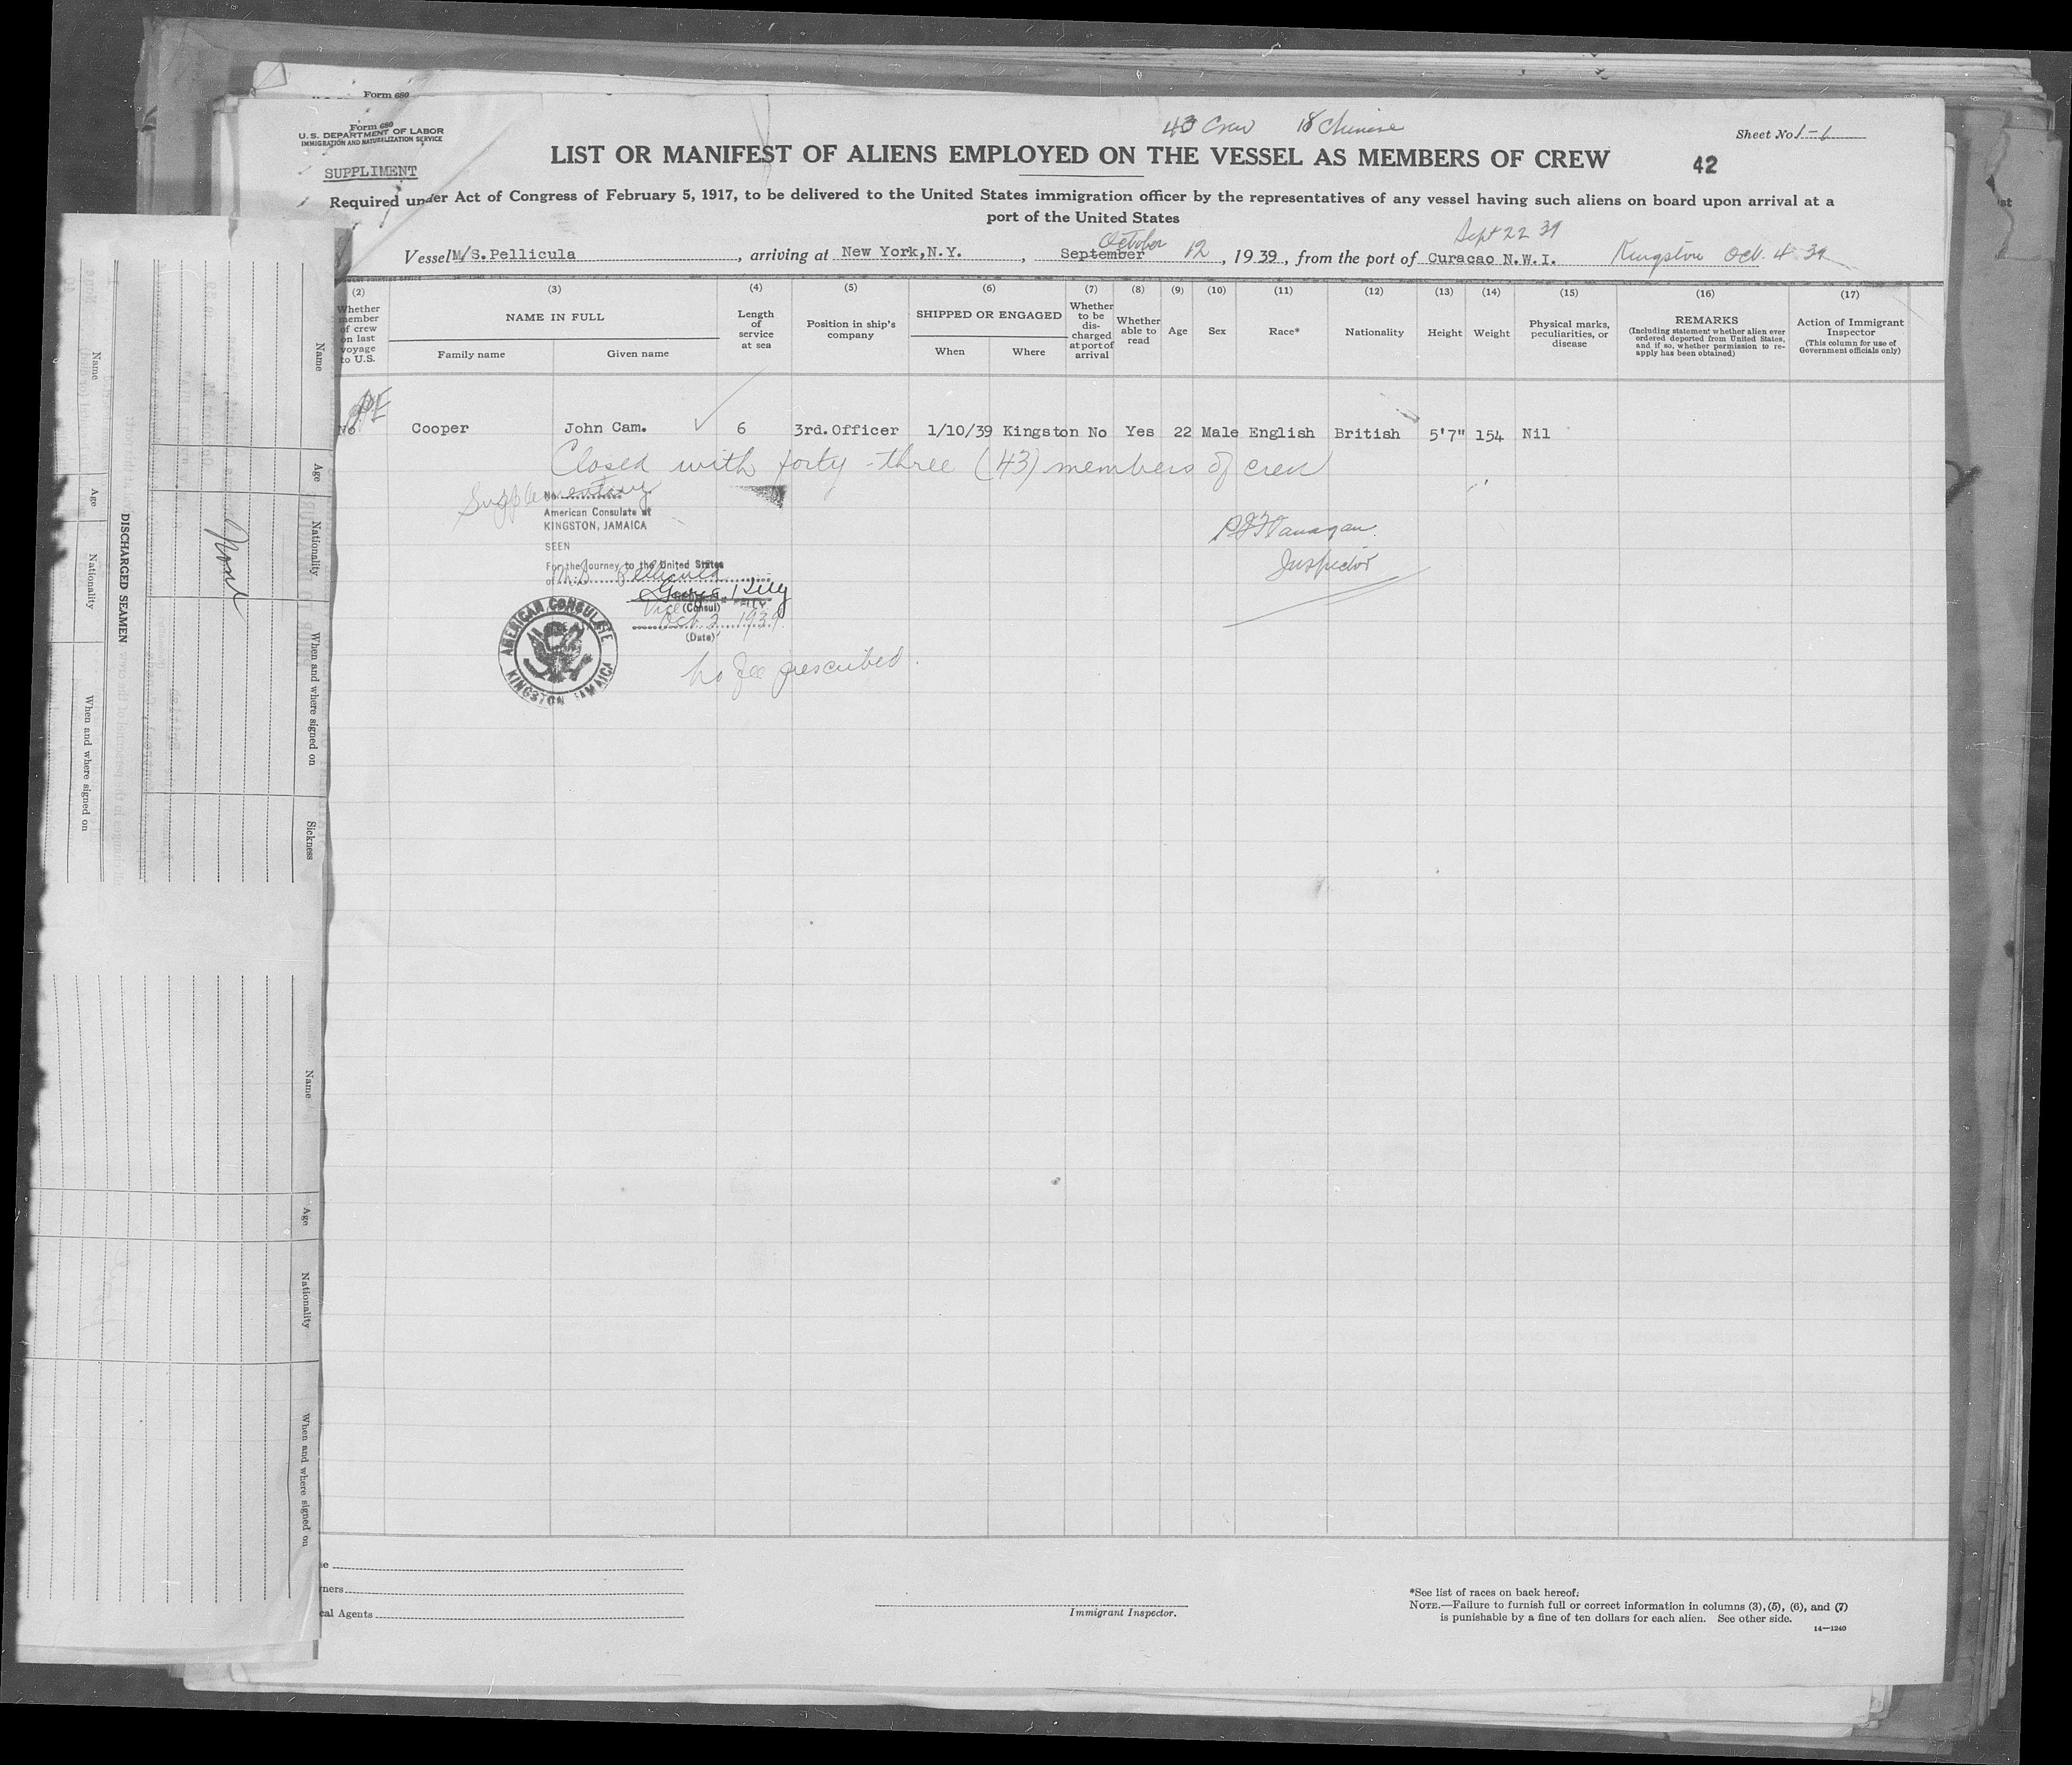 Form 680
Form 680
U.S. DEPARTMENT OF LABOR
IMMIGRATION AND NATURALIZATION SERVICE
SUPPLIMENT
43 Crew 18 Chinese
Sheet No. 1-1
LIST OR MANIFEST OF ALIENS EMPLOYED ON THE VESSEL AS MEMBERS OF CREW
42
Required under Act of Congress of February 5, 1917, to be delivered to the United States immigration officer by the representatives of any vessel having such aliens on board upon arrival at a
port of the United States
October
Sept 22 39
Vessel M/S.Pellicula, arriving at New York,N.Y., September 12, 1939, from the port of Curacao N.W.I. Kingston Oct. 4 39
(2) (3) (4) (5) (6) (7) (8) (9) (10) (11) (12) (13) (14) (15) (16) (17)
Whether member of crew on last voyage to U.S.
NAME IN FULL
Family name
Given name
Length of service at sea
Position in ship's company
SHIPPED OR ENGAGED
When
Where
Whether to be discharged at port of arrival
Whether able to read
Age
Sex
Race*
Nationality
Height
Weight
Physical marks, peculiarities, or disease
REMARKS
(Including statement whether alien ever ordered deported from United States, and if so, whether permission to re-apply has been obtained)
Action of Immigrant Inspector
(This column for use of Government officials only)
PE
No Cooper John Cam. 6 3rd.Officer 1/10/39 Kingston No Yes 22 Male English British 5'7" 154 Nil
Closed with forty-three (43) members of crew
Supplementary
No.
American Consulate at
KINGSTON, JAMAICA
SEEN
For the Journey to the United States
of M.S. Pellicula
Vice (Consul)
Oct. 2 1939.
(Date)
AMERICAN CONSULATE
KINGSTON JAMAICA
No fee prescribed.
Flanagan
Inspector
Name
Age
Nationality
When and where signed on
DISCHARGED SEAMEN
None
Name
Age
Nationality
When and where signed on
Sickness
Name
Age
Nationality
When and where signed on
cal Agents
Immigrant Inspector.
*See list of races on back hereof.
NOTE.—Failure to furnish full or correct information in columns (3), (5), (6), and (7)
is punishable by a fine of ten dollars for each alien. See other side.
14—1240